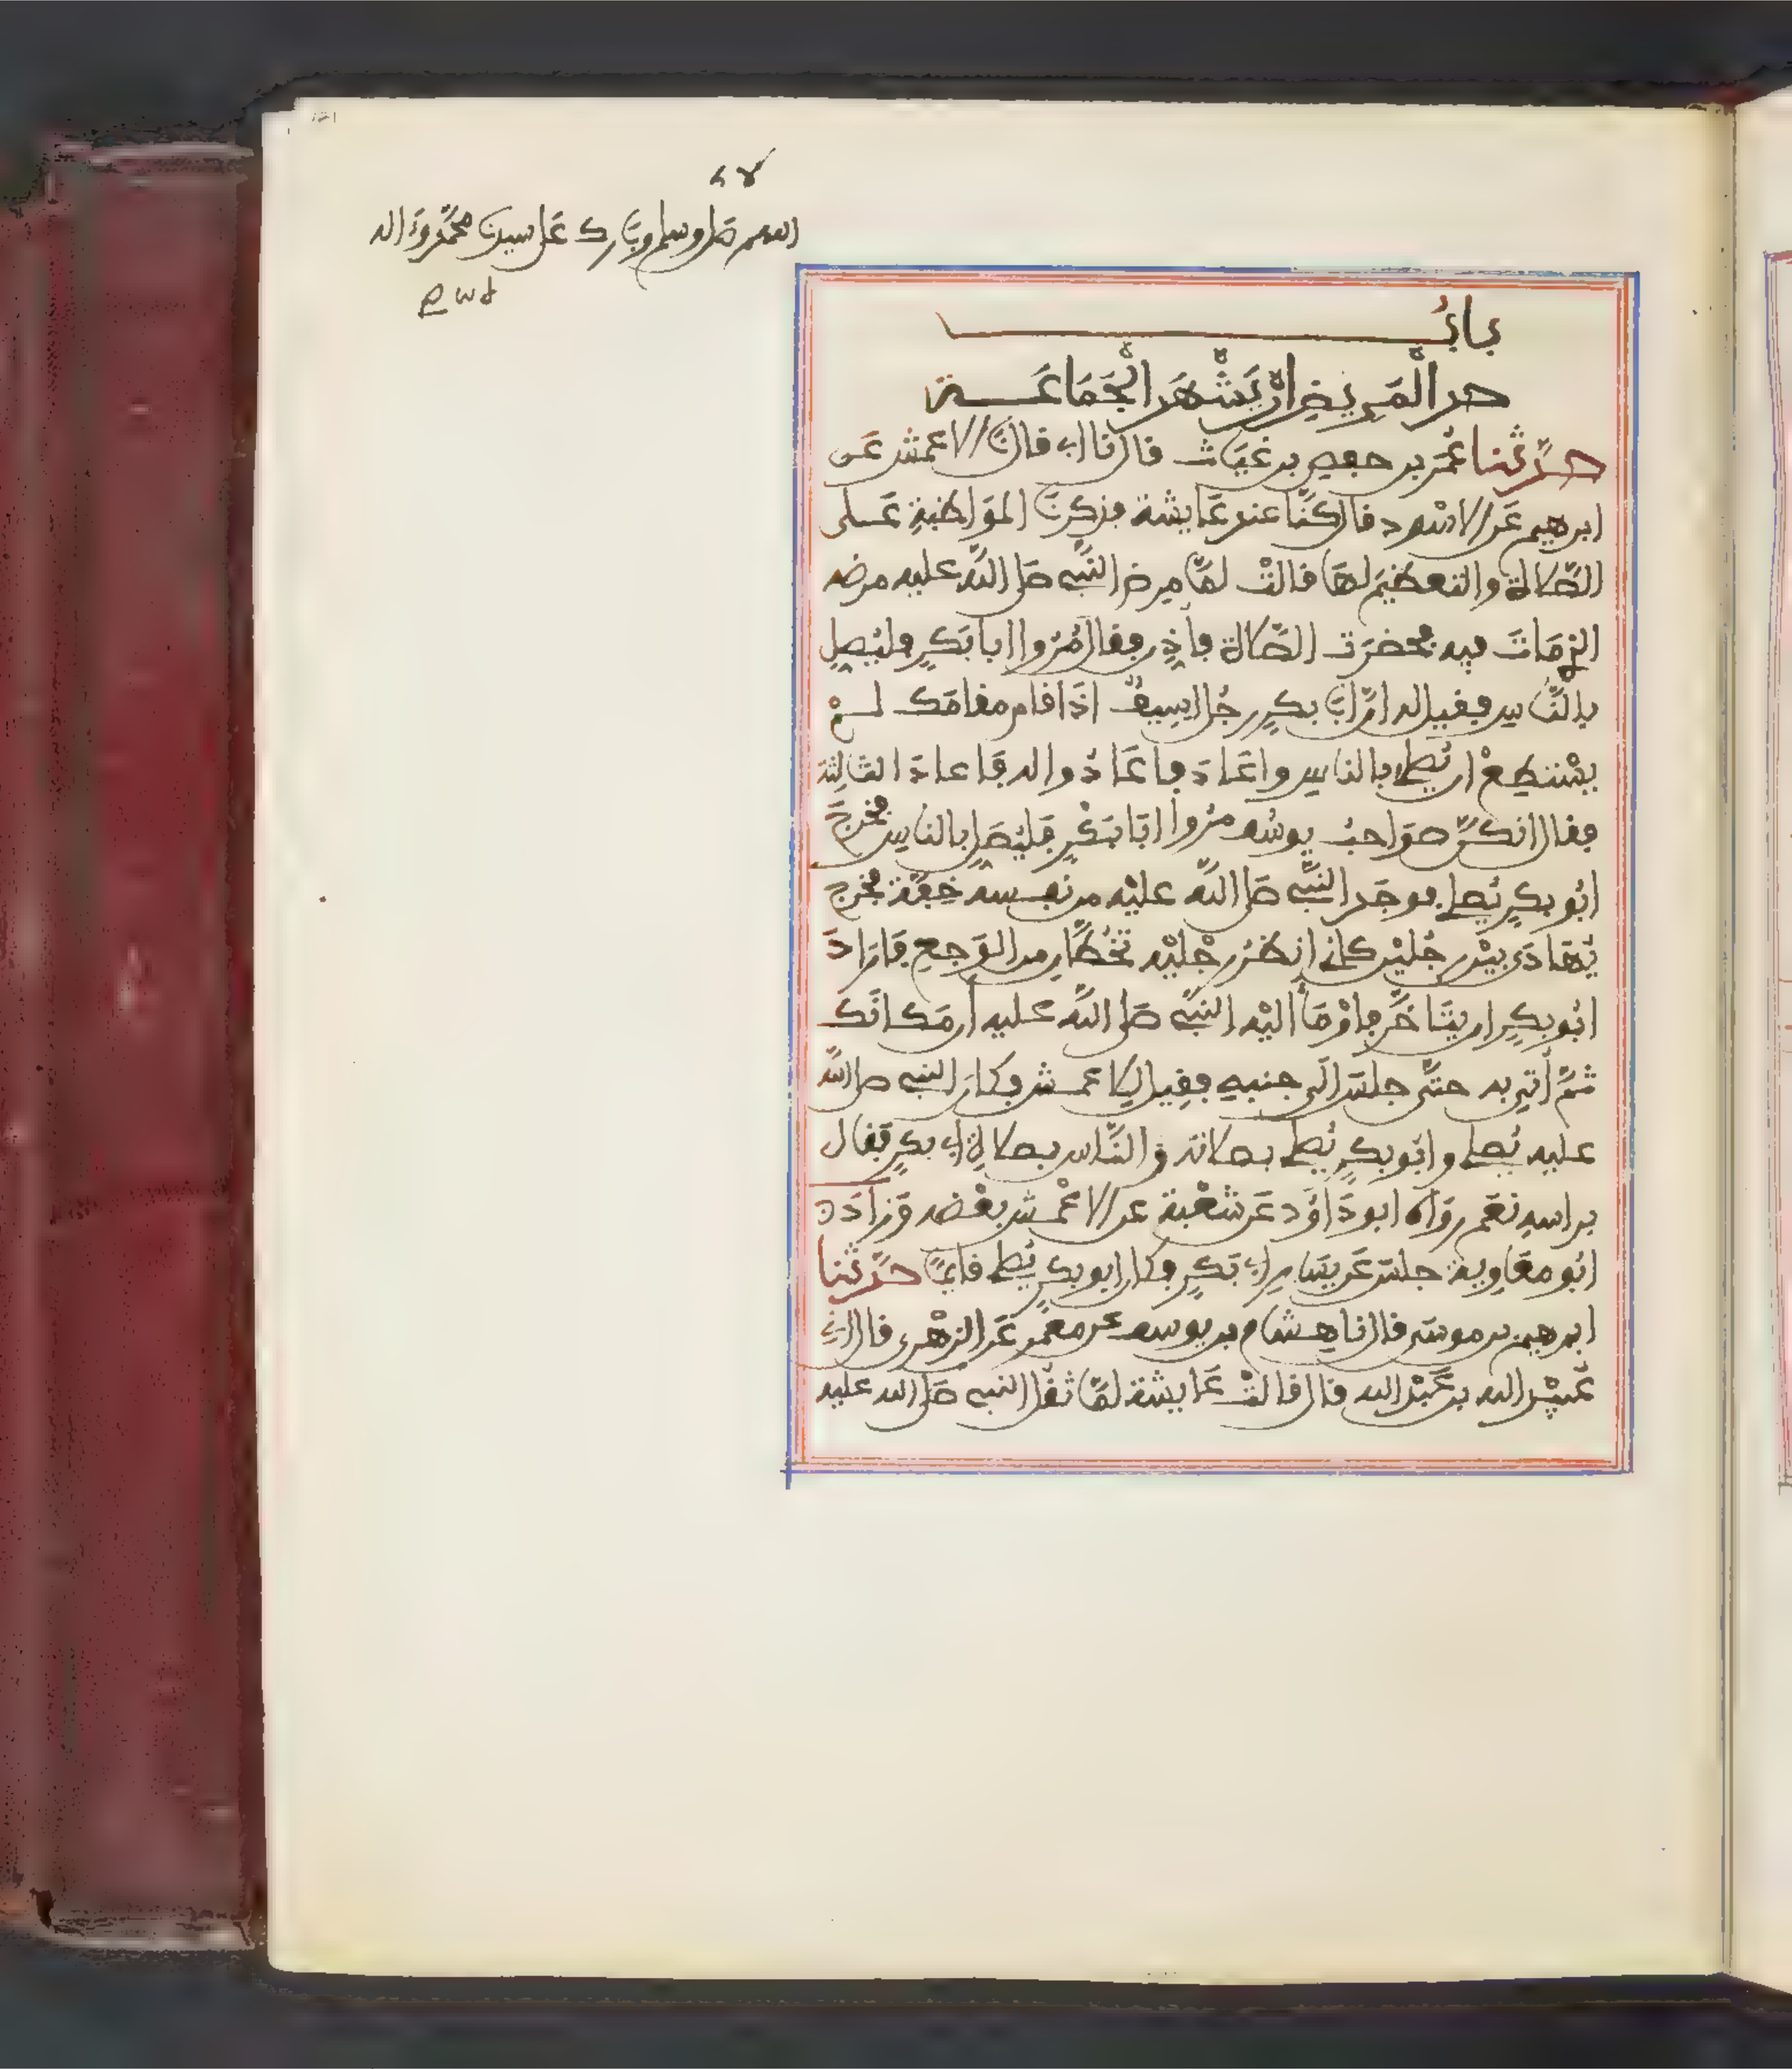 اللهم صل وسلم وبارك على سيدنا محمد وءاله
باب
حد المريض ان يشهد الجماعة
حدثنا عمر بن حفص بن غياث قال نا ابي قال نا الاعمش عن
ابرهيم عن الاسود قال كنا عند عايشة فذكرنا المواظبة على
الصلاة والتعظيم لها قالت لما مرض النبي صلى الله عليه مرضه
الذي مات فيه فحضرت الصلاة فأذن فقال مروا ابا بكر فليصل
بالناس فقيل له ان ابا بكر رجل اسيف اذا قام مقامك لم
يستطع ان يصلي بالناس واعاد فاعادوا له فاعاد الثالثة
فقال انكن صواحب يوسف مروا ابا بكر فليصل بالناس فخرج
ابو بكر يصلي فوجد النبي صلى الله عليه من نفسه خفة فخرج
يهادى بين رجلين كاني انظر رجليه تخطان من الوجع فاراد
ابو بكر ان يتاخر فاومأ اليه النبي صلى الله عليه أن مكانك
ثم أتي به حتى جلس الى جنبه فقيل للاعمش وكان النبي صلى الله
عليه يصلي وابو بكر يصلي بصلاته والناس بصلاة ابي بكر فقال
براسه نعم رواه ابو داود عن شعبة عن الاعمش بعضه وزاد
ابو معاوية جلس عن يسار ابي بكر وكان ابو بكر يصلي قايما حدثنا
ابرهيم بن موسى قال انا هشام بن يوسف عن معمر عن الزهري قال اني
عبيد الله بن عبد الله قال قالت عايشة لما ثقل النبي صلى الله عليه